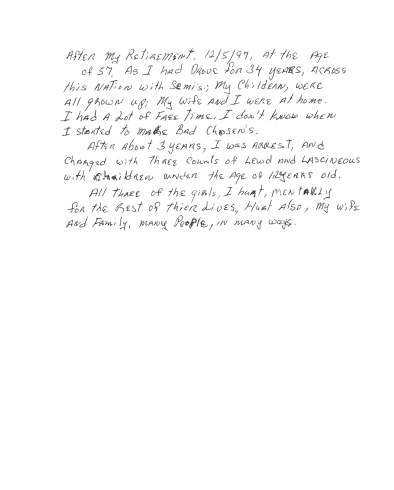 After my Retirement, 12/5/97, At the Age
of 57, As I had Drove for 34 years, Across
this Nation with Semi's; My Childean, were
all grown up; My Wife and I were at home.
I had A Lot of Free time. I don't know when
I started to make Bad Chosen's.
After About 3 years, I was Arrest, and
Charged with Three Counts of Lewd and Lascineous
with Children under the Age of 12 years old.
All three of the girls, I hurt, mentally
for the Rest of thier Lives, Hurt Also, My Wife
And Family, many People, in many ways.